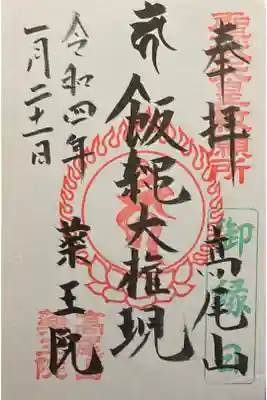 奉拝
高尾山
御縁日
飯縄大権現
薬王院
令和四年
一月二十一日
高尾山
薬王院